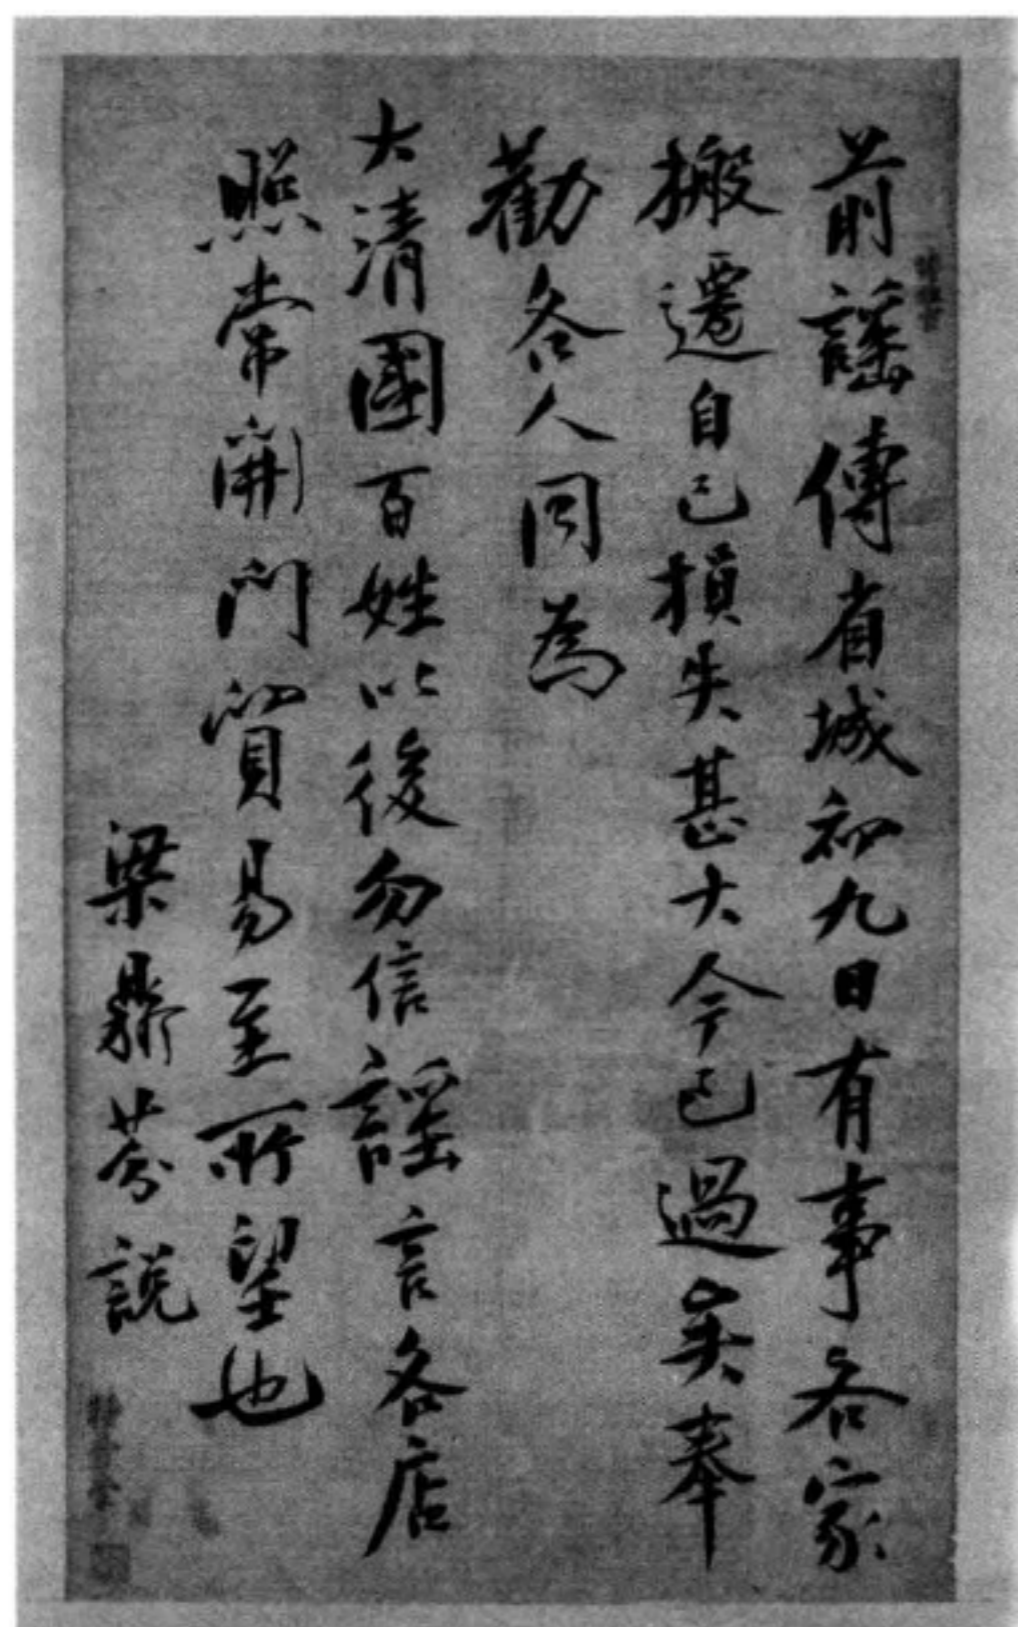 前謠傳省城初九日有事各家
搬遷自己損失甚大今已過矣奉
勸各人同為
大清國百姓以後勿信謠言各店
照常開門貿易至所望也
梁鼎芬說